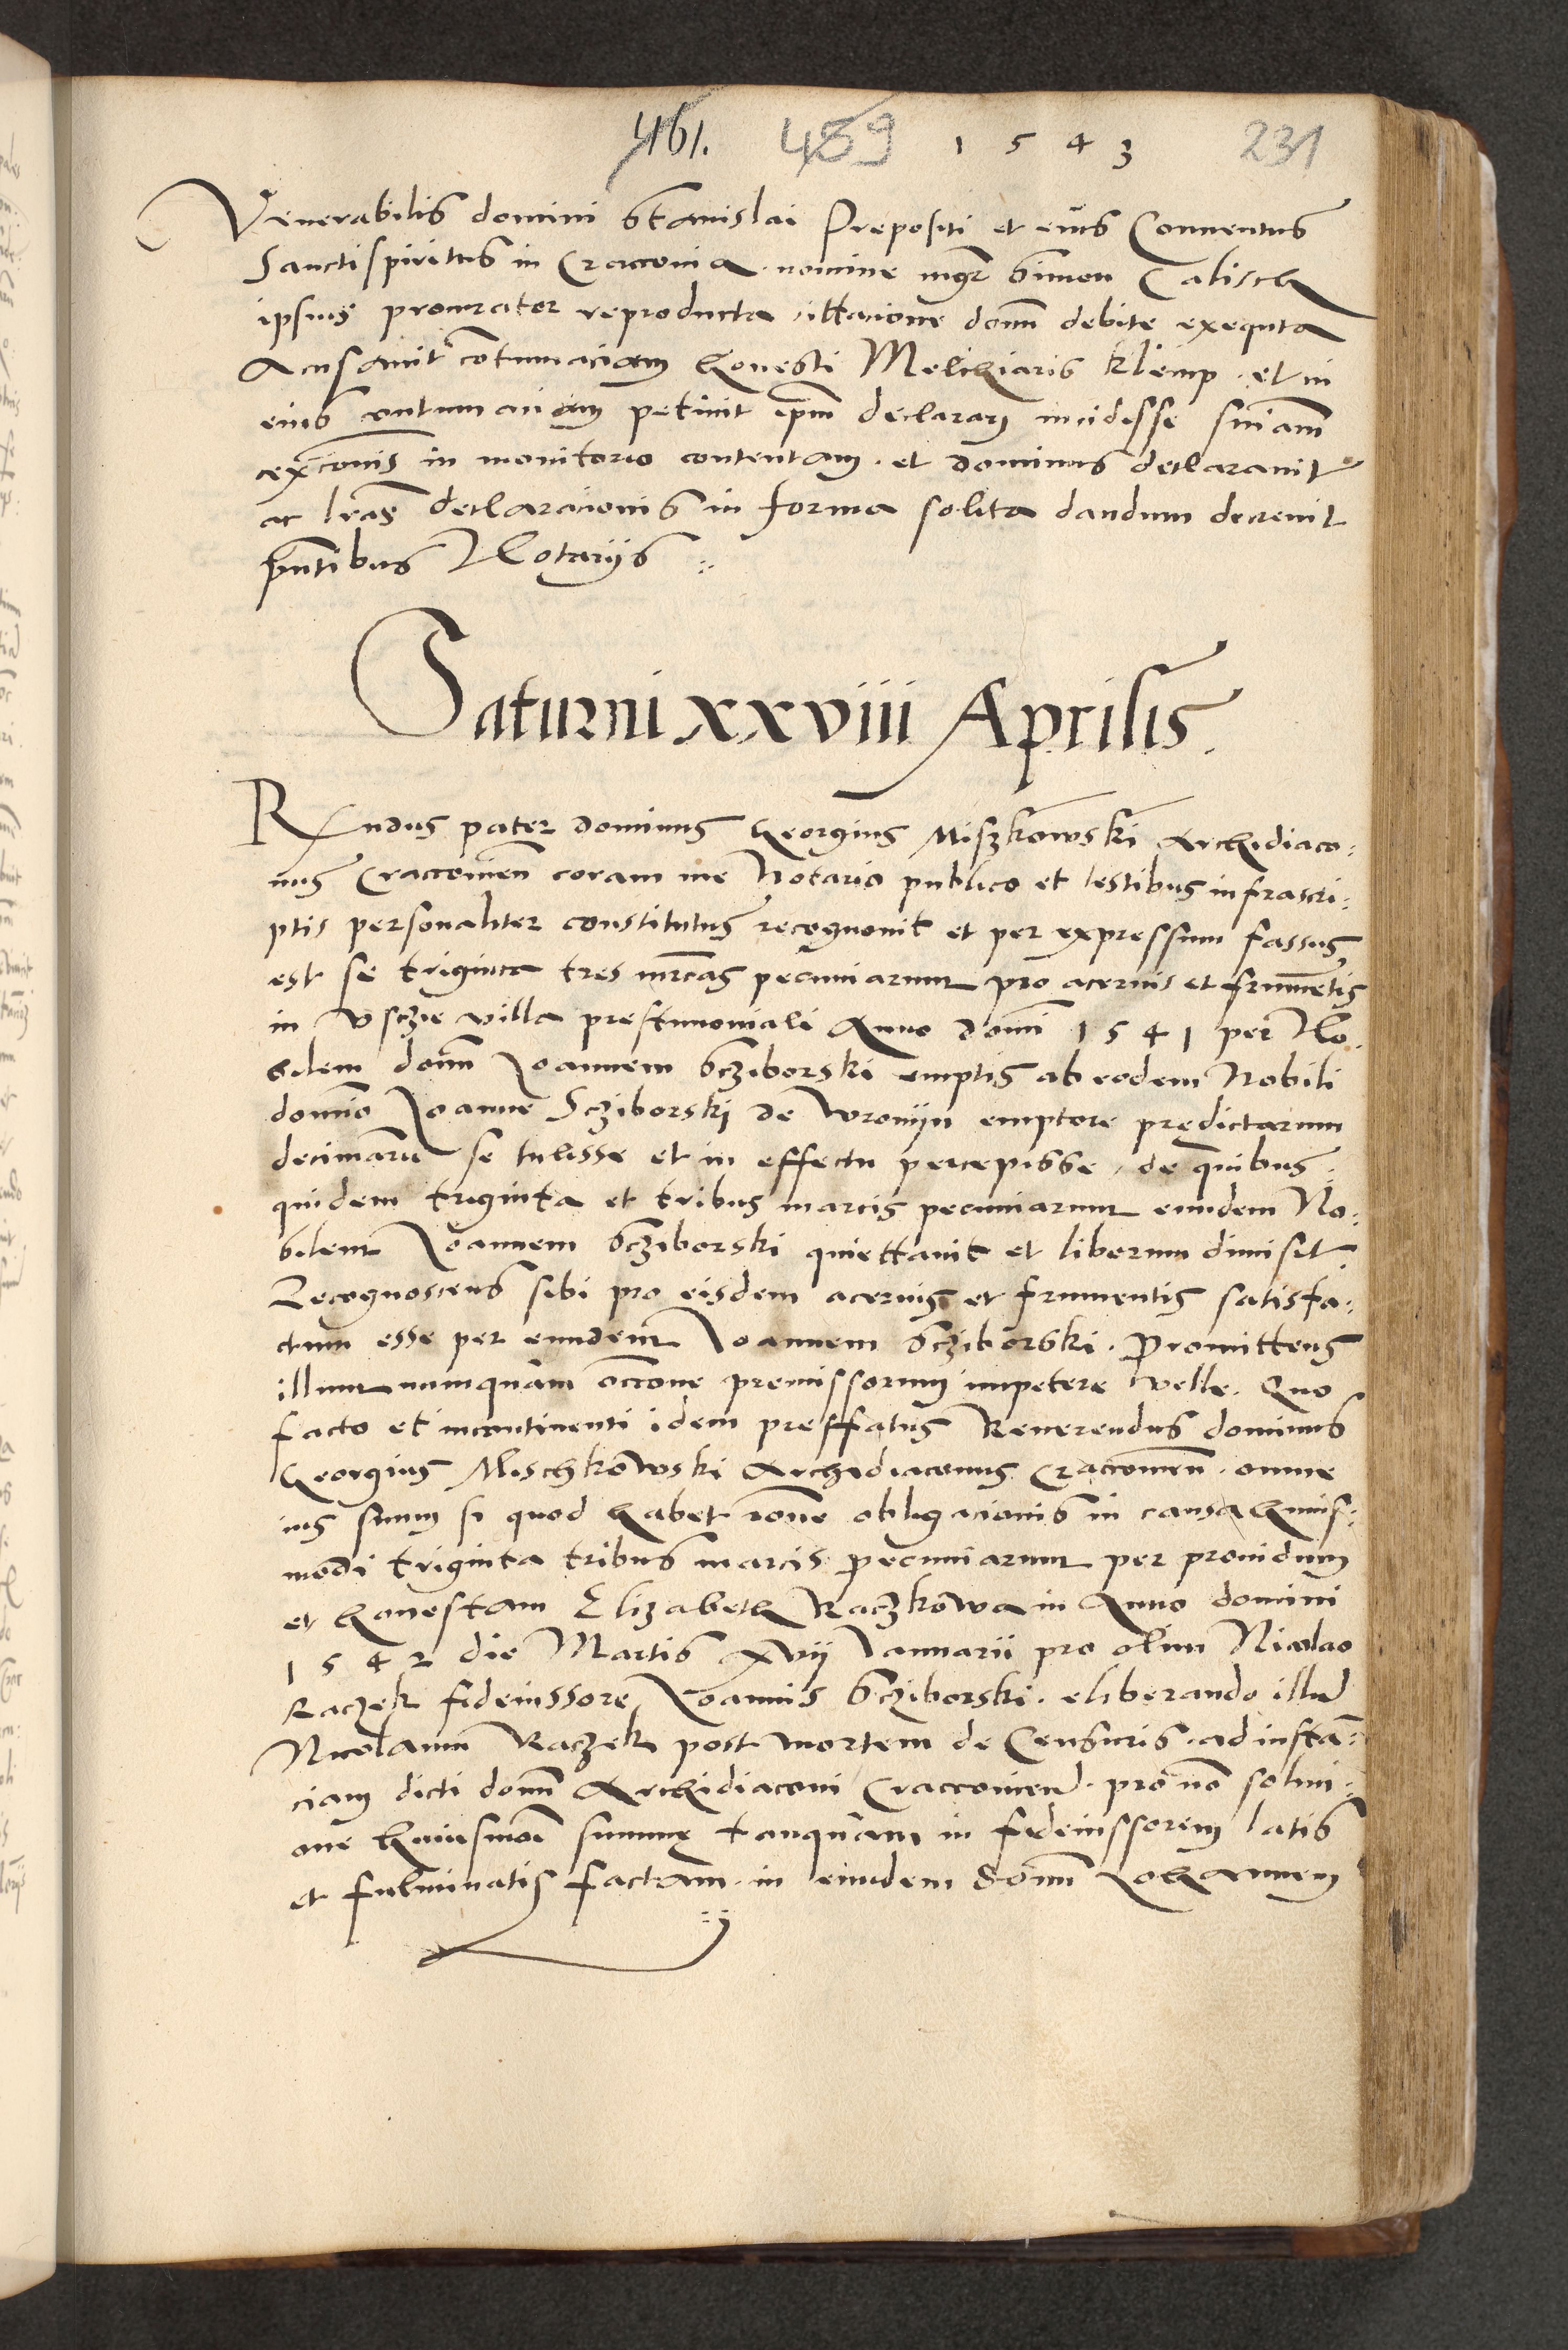 461. 489 1543 231
Venerabilis domini Stanislai Prepositi et eius Conuentus
Sancti spiritus in Cracouia nomine mgr Simon Calisch
ipsius procurator reproducta citacione donm debite exequta
Acusauit contumaciam honesti Melchiaris Klemp. et in
eius contumaciam petiuit ipm declarari incidisse sniam
excōionis in monitorio contentam. et dominus declarauit
ac lras declaracionis in forma solita dandum decreuit
pntibus Notarijs
Saturni xxviii Aprilis.
Rndus pater dominus Georgius Miszkowski Archidiaco:
nus Cracouien coram me Notario publico et testibus infrascri:
ptis personaliter constitutus recognouit et per expressum fassus
est se triginta tres mrcas pecuniarum pro aceruis et frumetis
in Vsczie villa prestimoniali Anno domi 1541 per No.
bilem donm Joannem Scziborski emptis ab eodem Nobili
domino Joanne Scziborski de Wronijn emptore predictarum
decimaru se tulisse et in effectu percepisse, de quibus
quidem triginta et tribus marcis pecuniarum eundem No:
bilem Joannem Scziborski quiettauit et liberum dimisit.
Recognoscens sibi pro eisdem aceruis et frumentis satisfa:
ctum esse per eundem Joannem Scziborski. Promittens
illum numquam occone premissorum impetere velle. Quo
facto et incontinenti idem preffatus Reuerendus dominus
Georgius Mischkowski Archidiaconus Cracouien. omne
ius suum si quod habet rone obligacionis in causa huius:
modi triginta tribus marcis pecuniarum per prouidum
et honestam Elizabeth Raczkowa in Anno domini
1542 die Martis xvij Januarii pro olim Nicolao
Raczek fideiussore Joannis Scziborski. eliberando illud
Nicolaum Raczek post mortem de Censuris. ad insta:
ciam dicti donm Archidiaconi Cracouien. pro no soluci:
one huiusmodi summe tanquam in fideiussorem latis
et fulminatis factam. in eundem donm Johannem